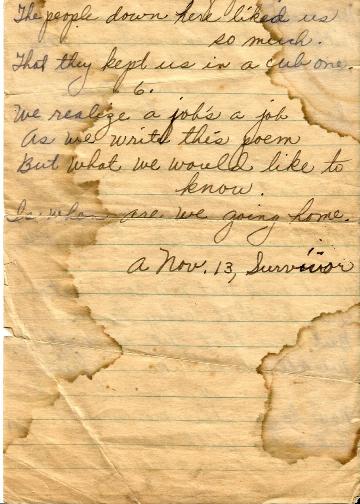 The people down here liked us
so much.
That they kept us in a cub one.
6.
We realize a job's a job
As we write this poem
But what we would like to
know.
Is when are we going home.
A Nov. 13, Survivor